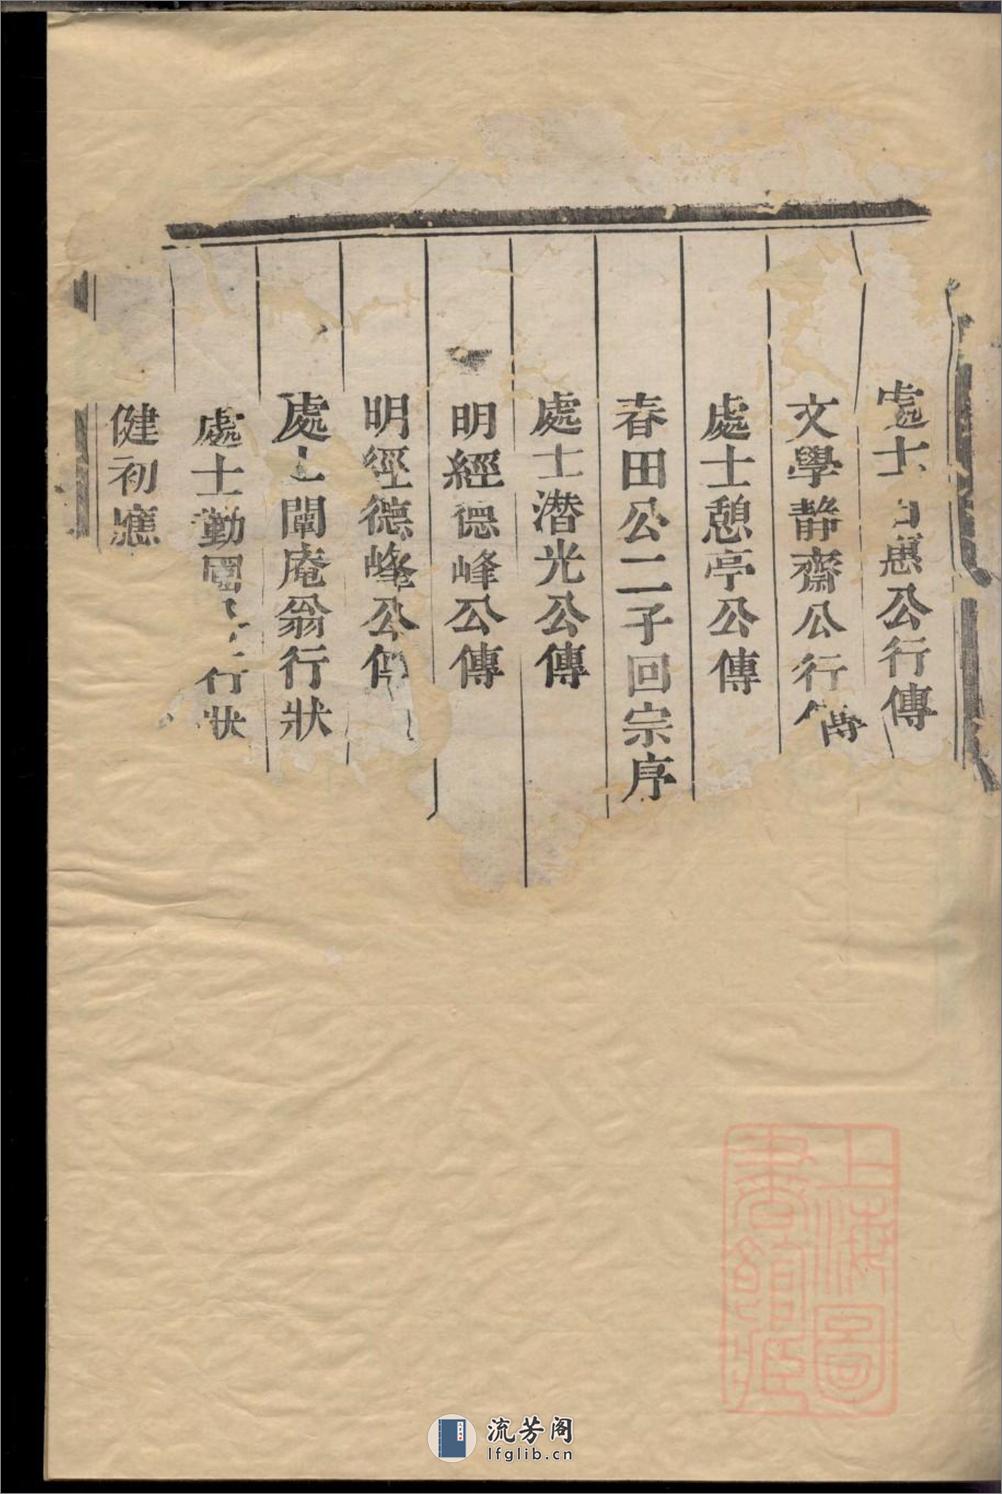 處士惠公行傳
文學靜齋公行傳
處士憩亭公傳
春田公二子回宗序
處士潜光公傳
明經德峰公傳
明經德峰公傳
處士闇庵翁行狀
處士勤園行狀
健初應
上海圖
書館藏
流芳阁
lfglib.cn